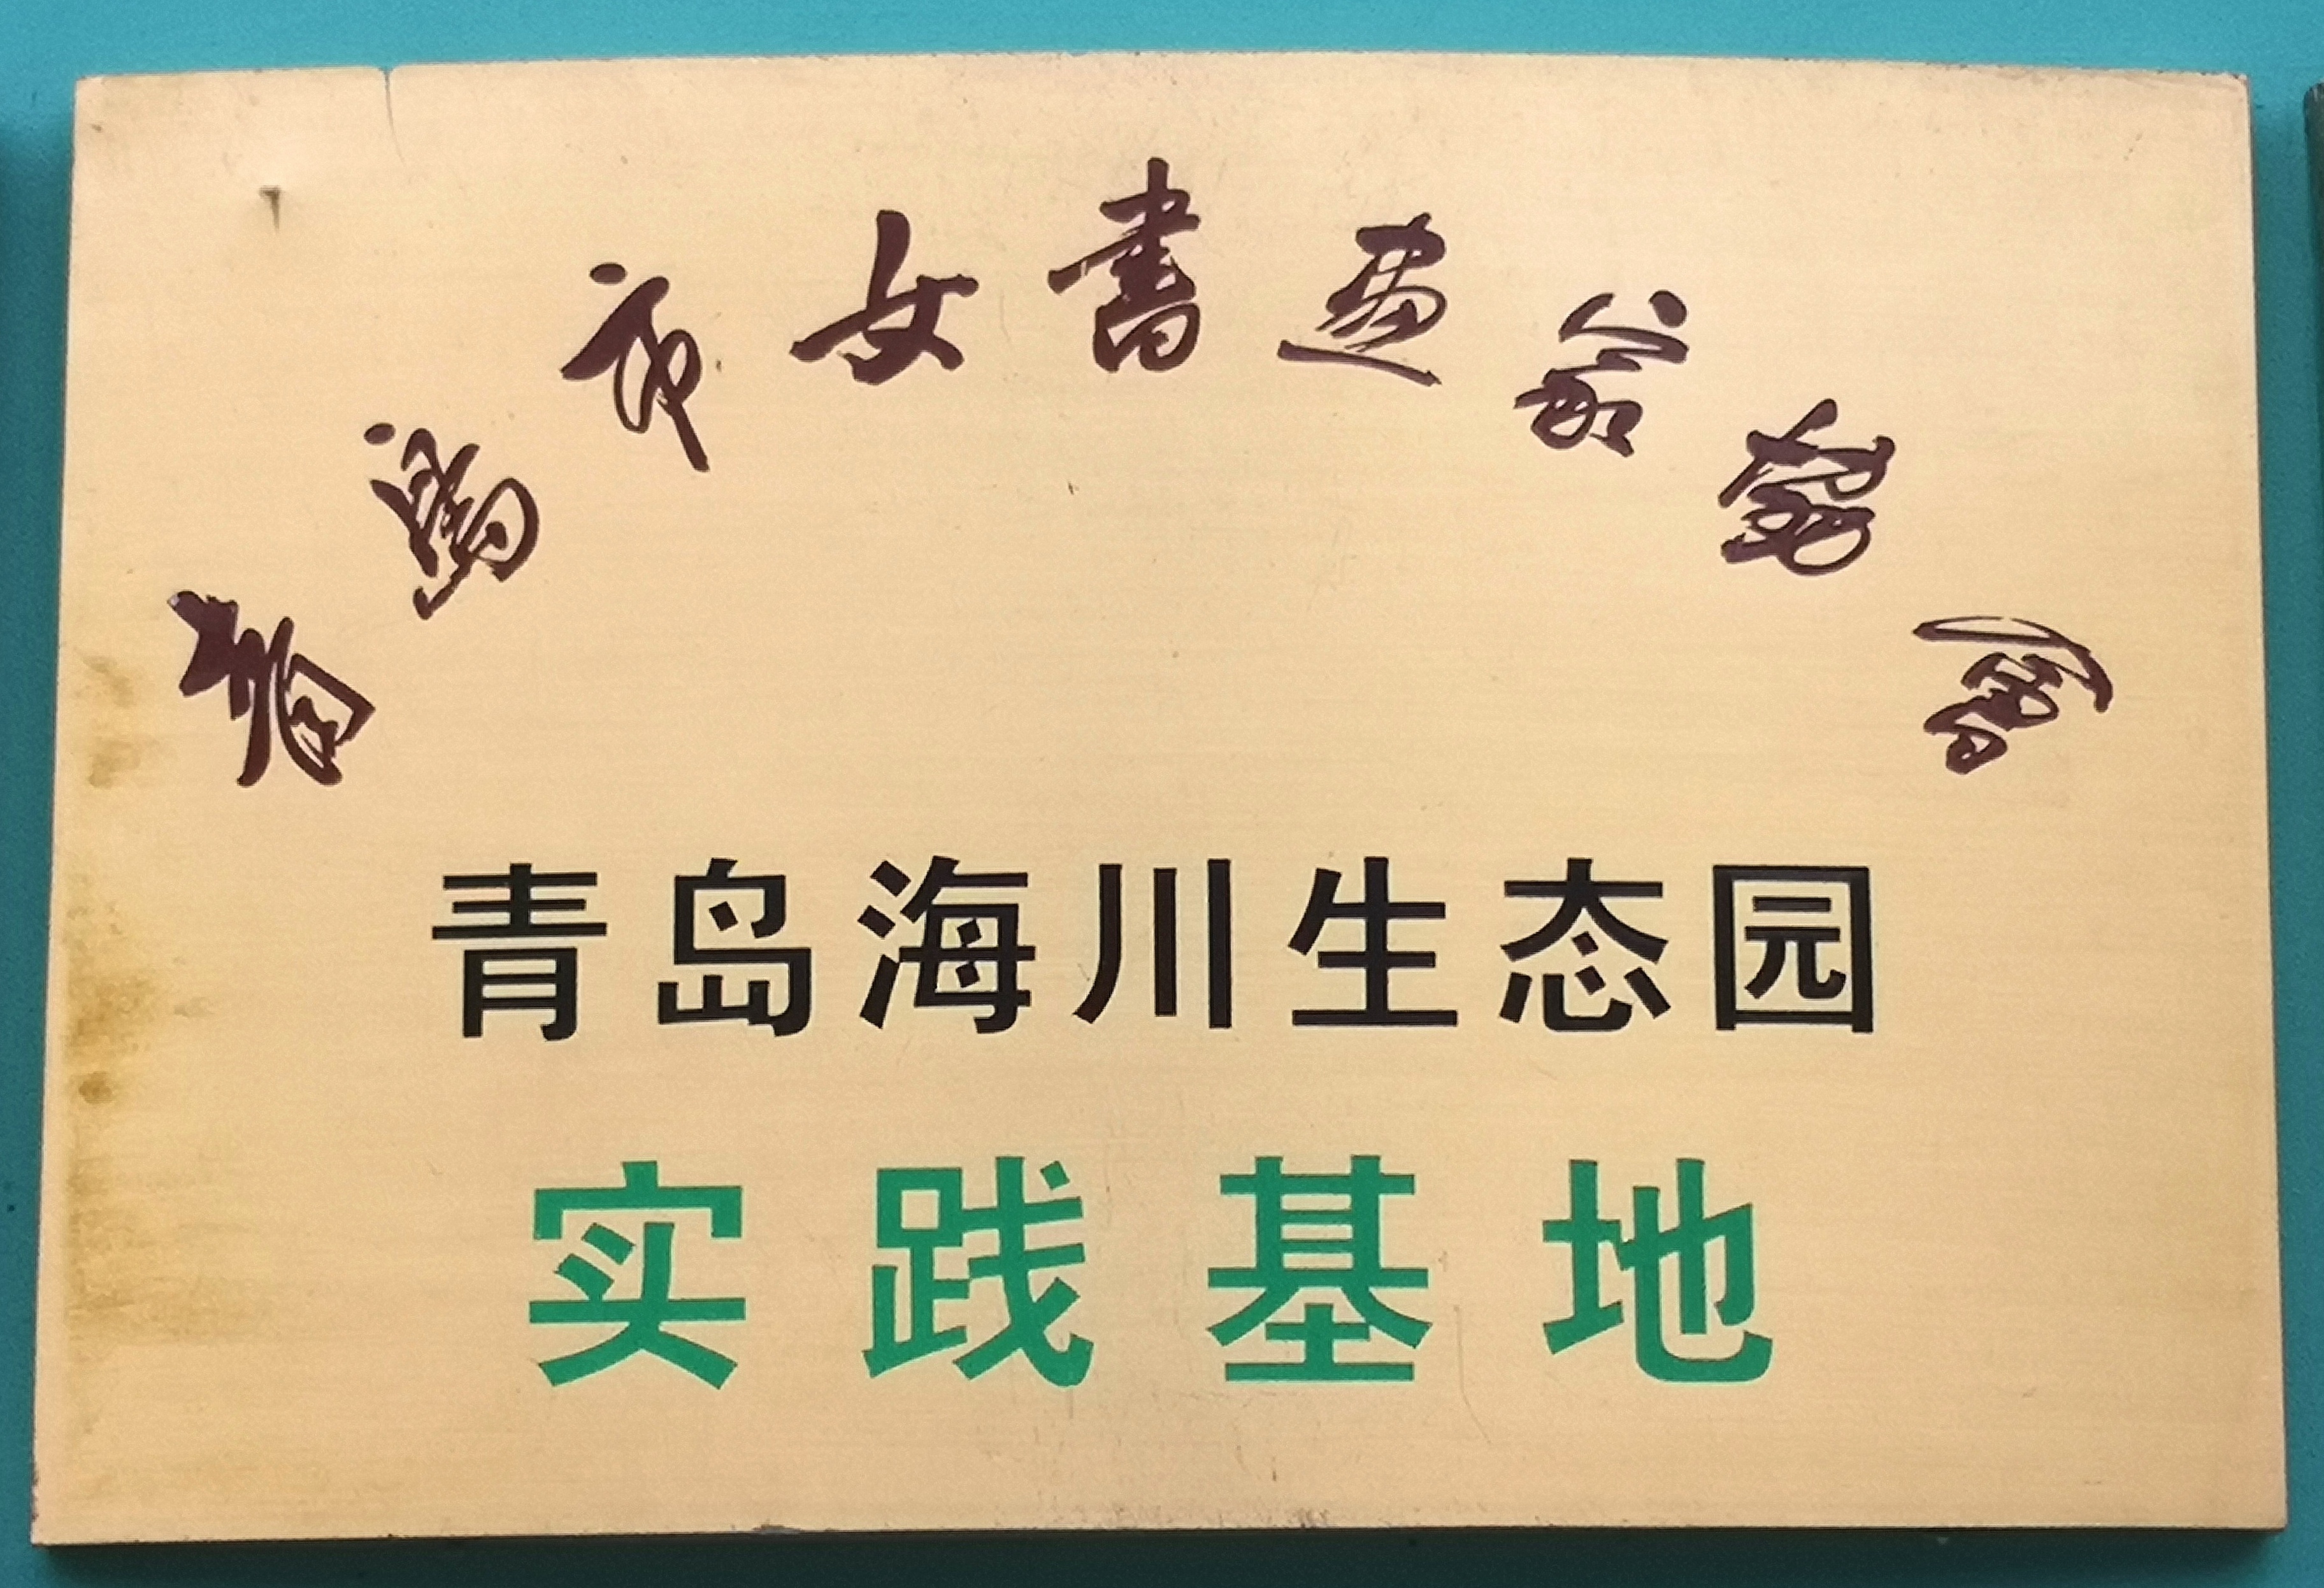 青島市女書画家協會
青岛海川生态园
实践基地